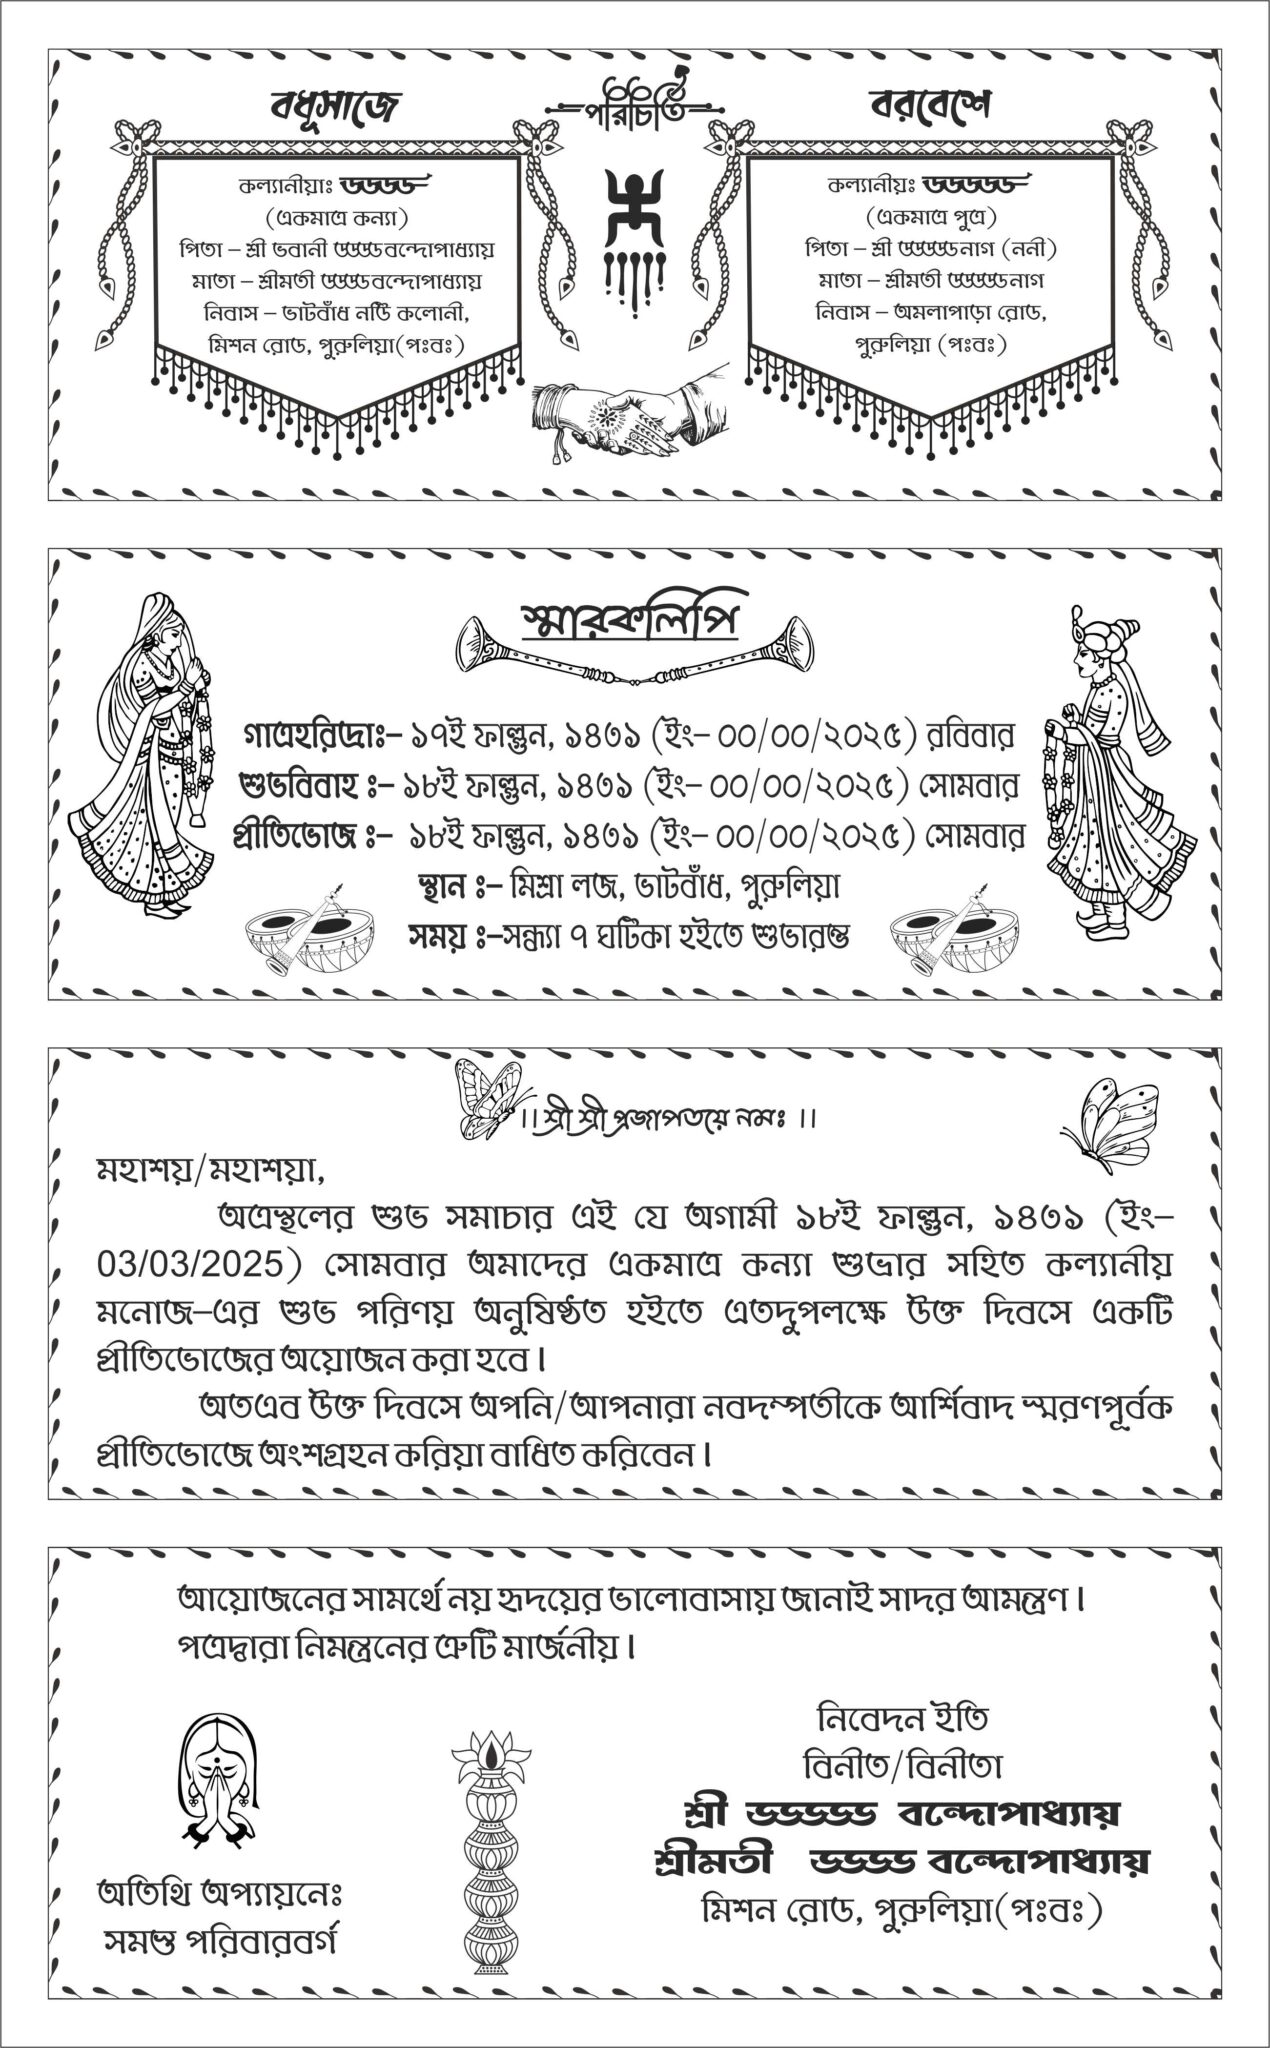 বধূসাজে
পরিচিতি
বরবেশে
কল্যানীয়াঃ ডডডডড
(একমাত্র কন্যা)
পিতা – শ্রী ভবানী ডডডডবন্দোপাধ্যায়
মাতা – শ্রীমতী ডডডডবন্দোপাধ্যায়
নিবাস – ভাটবাঁধ নডি কলোনী,
মিশন রোড, পুরুলিয়া(পঃবঃ)
কল্যানীয়ঃ ডডডডডড
(একমাত্র পুত্র)
পিতা – শ্রী ডডডডডনাগ (ননী)
মাতা – শ্রীমতী ডডডডডনাগ
নিবাস – অমলাপাড়া রোড,
পুরুলিয়া (পঃবঃ)
স্মারকলিপি
গাত্রহরিদ্রাঃ– ১৭ই ফাল্গুন, ১৪৩১ (ইং– ০০/০০/২০২৫) রবিবার
শুভবিবাহ ঃ– ১৮ই ফাল্গুন, ১৪৩১ (ইং– ০০/০০/২০২৫) সোমবার
প্রীতিভোজ ঃ– ১৮ই ফাল্গুন, ১৪৩১ (ইং– ০০/০০/২০২৫) সোমবার
স্থান ঃ– মিশ্রা লজ, ভাটবাঁধ, পুরুলিয়া
সময় ঃ–সন্ধ্যা ৭ ঘটিকা হইতে শুভারম্ভ
।। শ্রী শ্রী প্রজাপতয়ে নমঃ ।।
মহাশয়/মহাশয়া,
অত্রস্থলের শুভ সমাচার এই যে অগামী ১৮ই ফাল্গুন, ১৪৩১ (ইং–
03/03/2025) সোমবার অমাদের একমাত্র কন্যা শুভ্রার সহিত কল্যানীয়
মনোজ–এর শুভ পরিণয় অনুষিষ্ঠত হইতে এতদুপলক্ষে উক্ত দিবসে একটি
প্রীতিভোজের অয়োজন করা হবে।
অতএব উক্ত দিবসে অপনি/আপনারা নবদম্পতীকে আর্শিবাদ স্মরণপূর্বক
প্রীতিভোজে অংশগ্রহন করিয়া বাধিত করিবেন।
আয়োজনের সামর্থে নয় হৃদয়ের ভালোবাসায় জানাই সাদর আমন্ত্রণ।
পত্রদ্বারা নিমন্ত্রনের ত্রুটি মার্জনীয়।
নিবেদন ইতি
বিনীত/বিনীতা
শ্রী ডডডডডড বন্দোপাধ্যায়
শ্রীমতী ডডডডড বন্দোপাধ্যায়
মিশন রোড, পুরুলিয়া(পঃবঃ)
অতিথি অপ্যায়নেঃ
সমস্ত পরিবারবর্গ